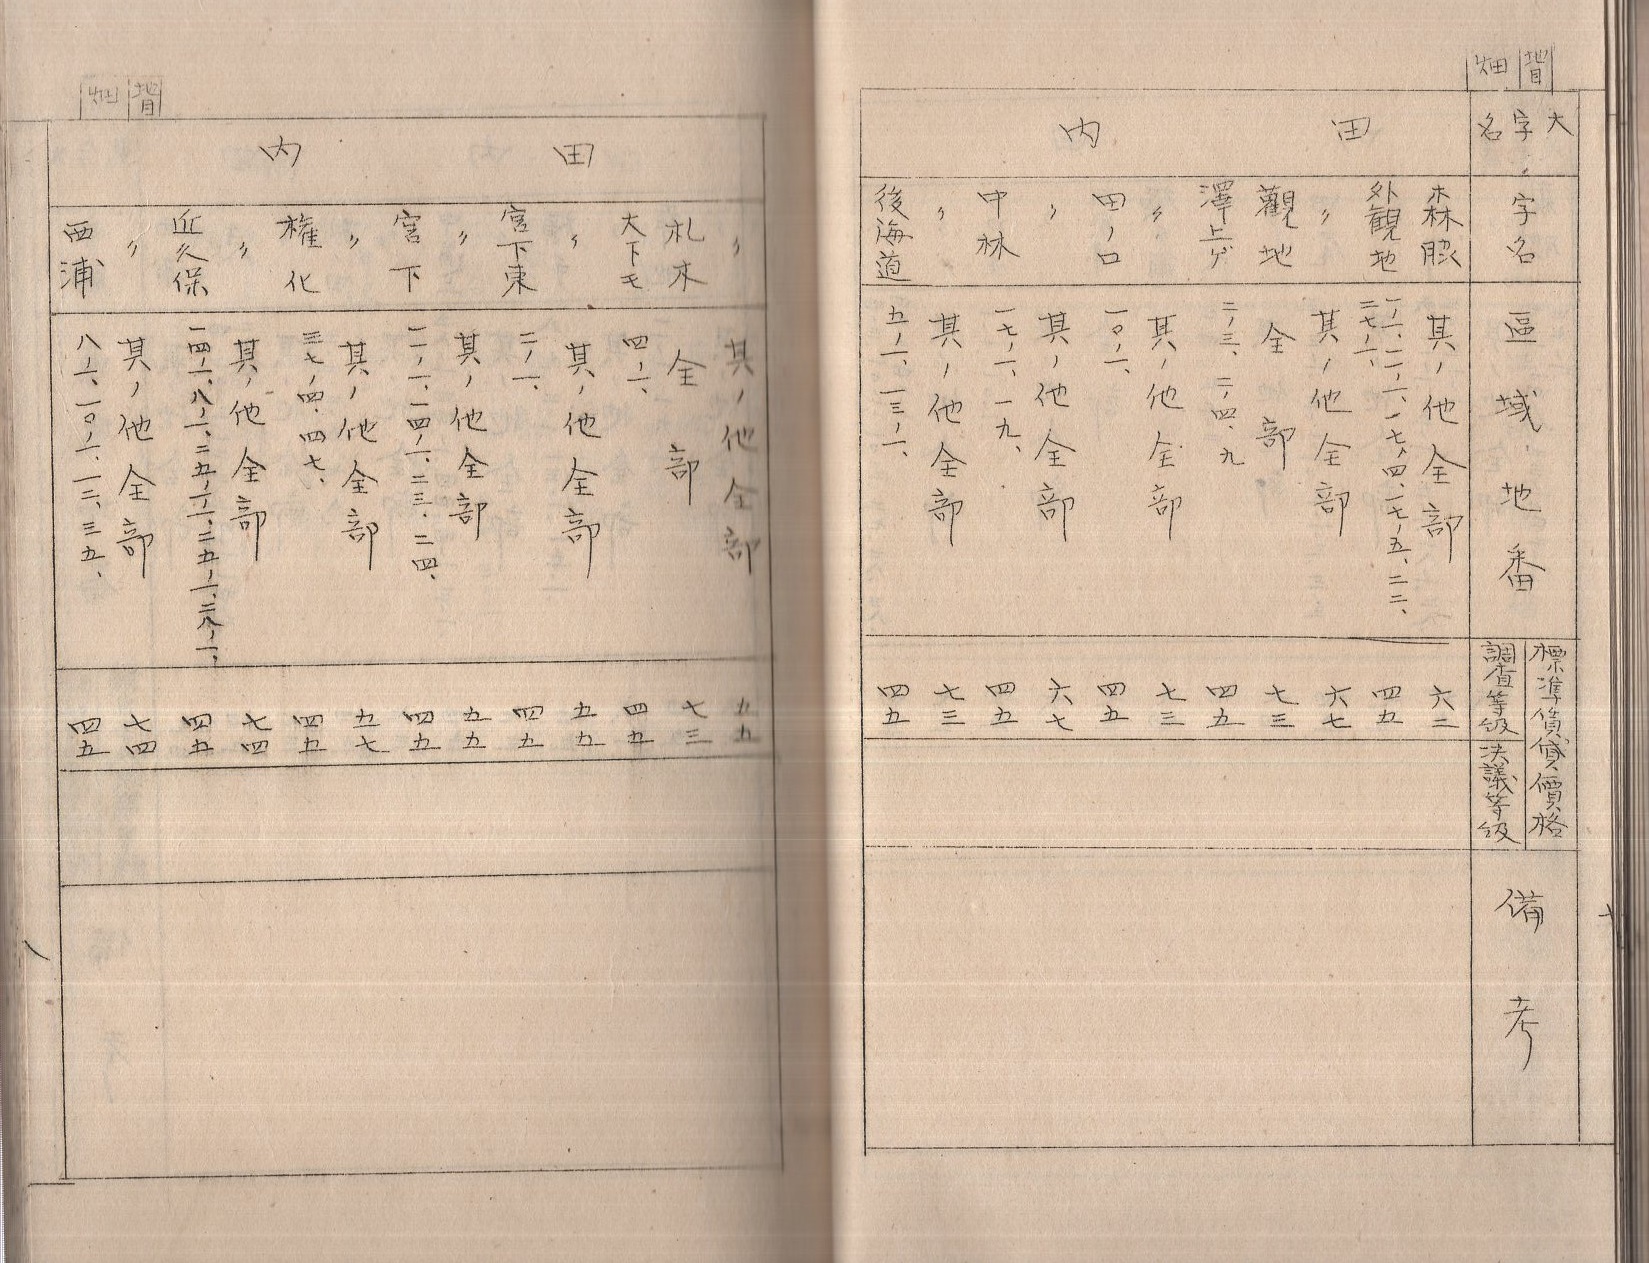 地目
畑
大字名
字名
區域、地番
標準賃貸價格
調査等級
決議等級
備考
田内
森脇 其ノ他全部 六二
外観地 一ノ一、二ノ一、一七ノ四、一七ノ五、二二、二七ノ一、 四五
〃 其ノ他全部 六七
觀地 全部 七三
澤上ゲ 二ノ三、二ノ四、九 四五
〃 其ノ他全部 七三
田ノ口 一〇ノ一、 四五
〃 其ノ他全部 六七
中林 一七ノ一、一九、 四五
〃 其ノ他全部 七三
後海道 五ノ一、一三ノ一、 四五
地目
畑
田内
〃 其ノ他全部 五五
札木 全部 七三
大下モ 四ノ一、 四五
〃 其ノ他全部 五五
宮下東 二ノ一、 四五
〃 其ノ他全部 五五
宮下 一一ノ一、一四ノ一、二三、二四、 四五
〃 其ノ他全部 五七
權化 三七ノ四、四七、 四五
〃 其ノ他全部 七四
近久保 一四ノ一、八ノ一、二五ノ一、二五ノ一、二八ノ一、 四五
〃 其ノ他全部 七四
西浦 八ノ一、一〇ノ一、一二、三五、 四五